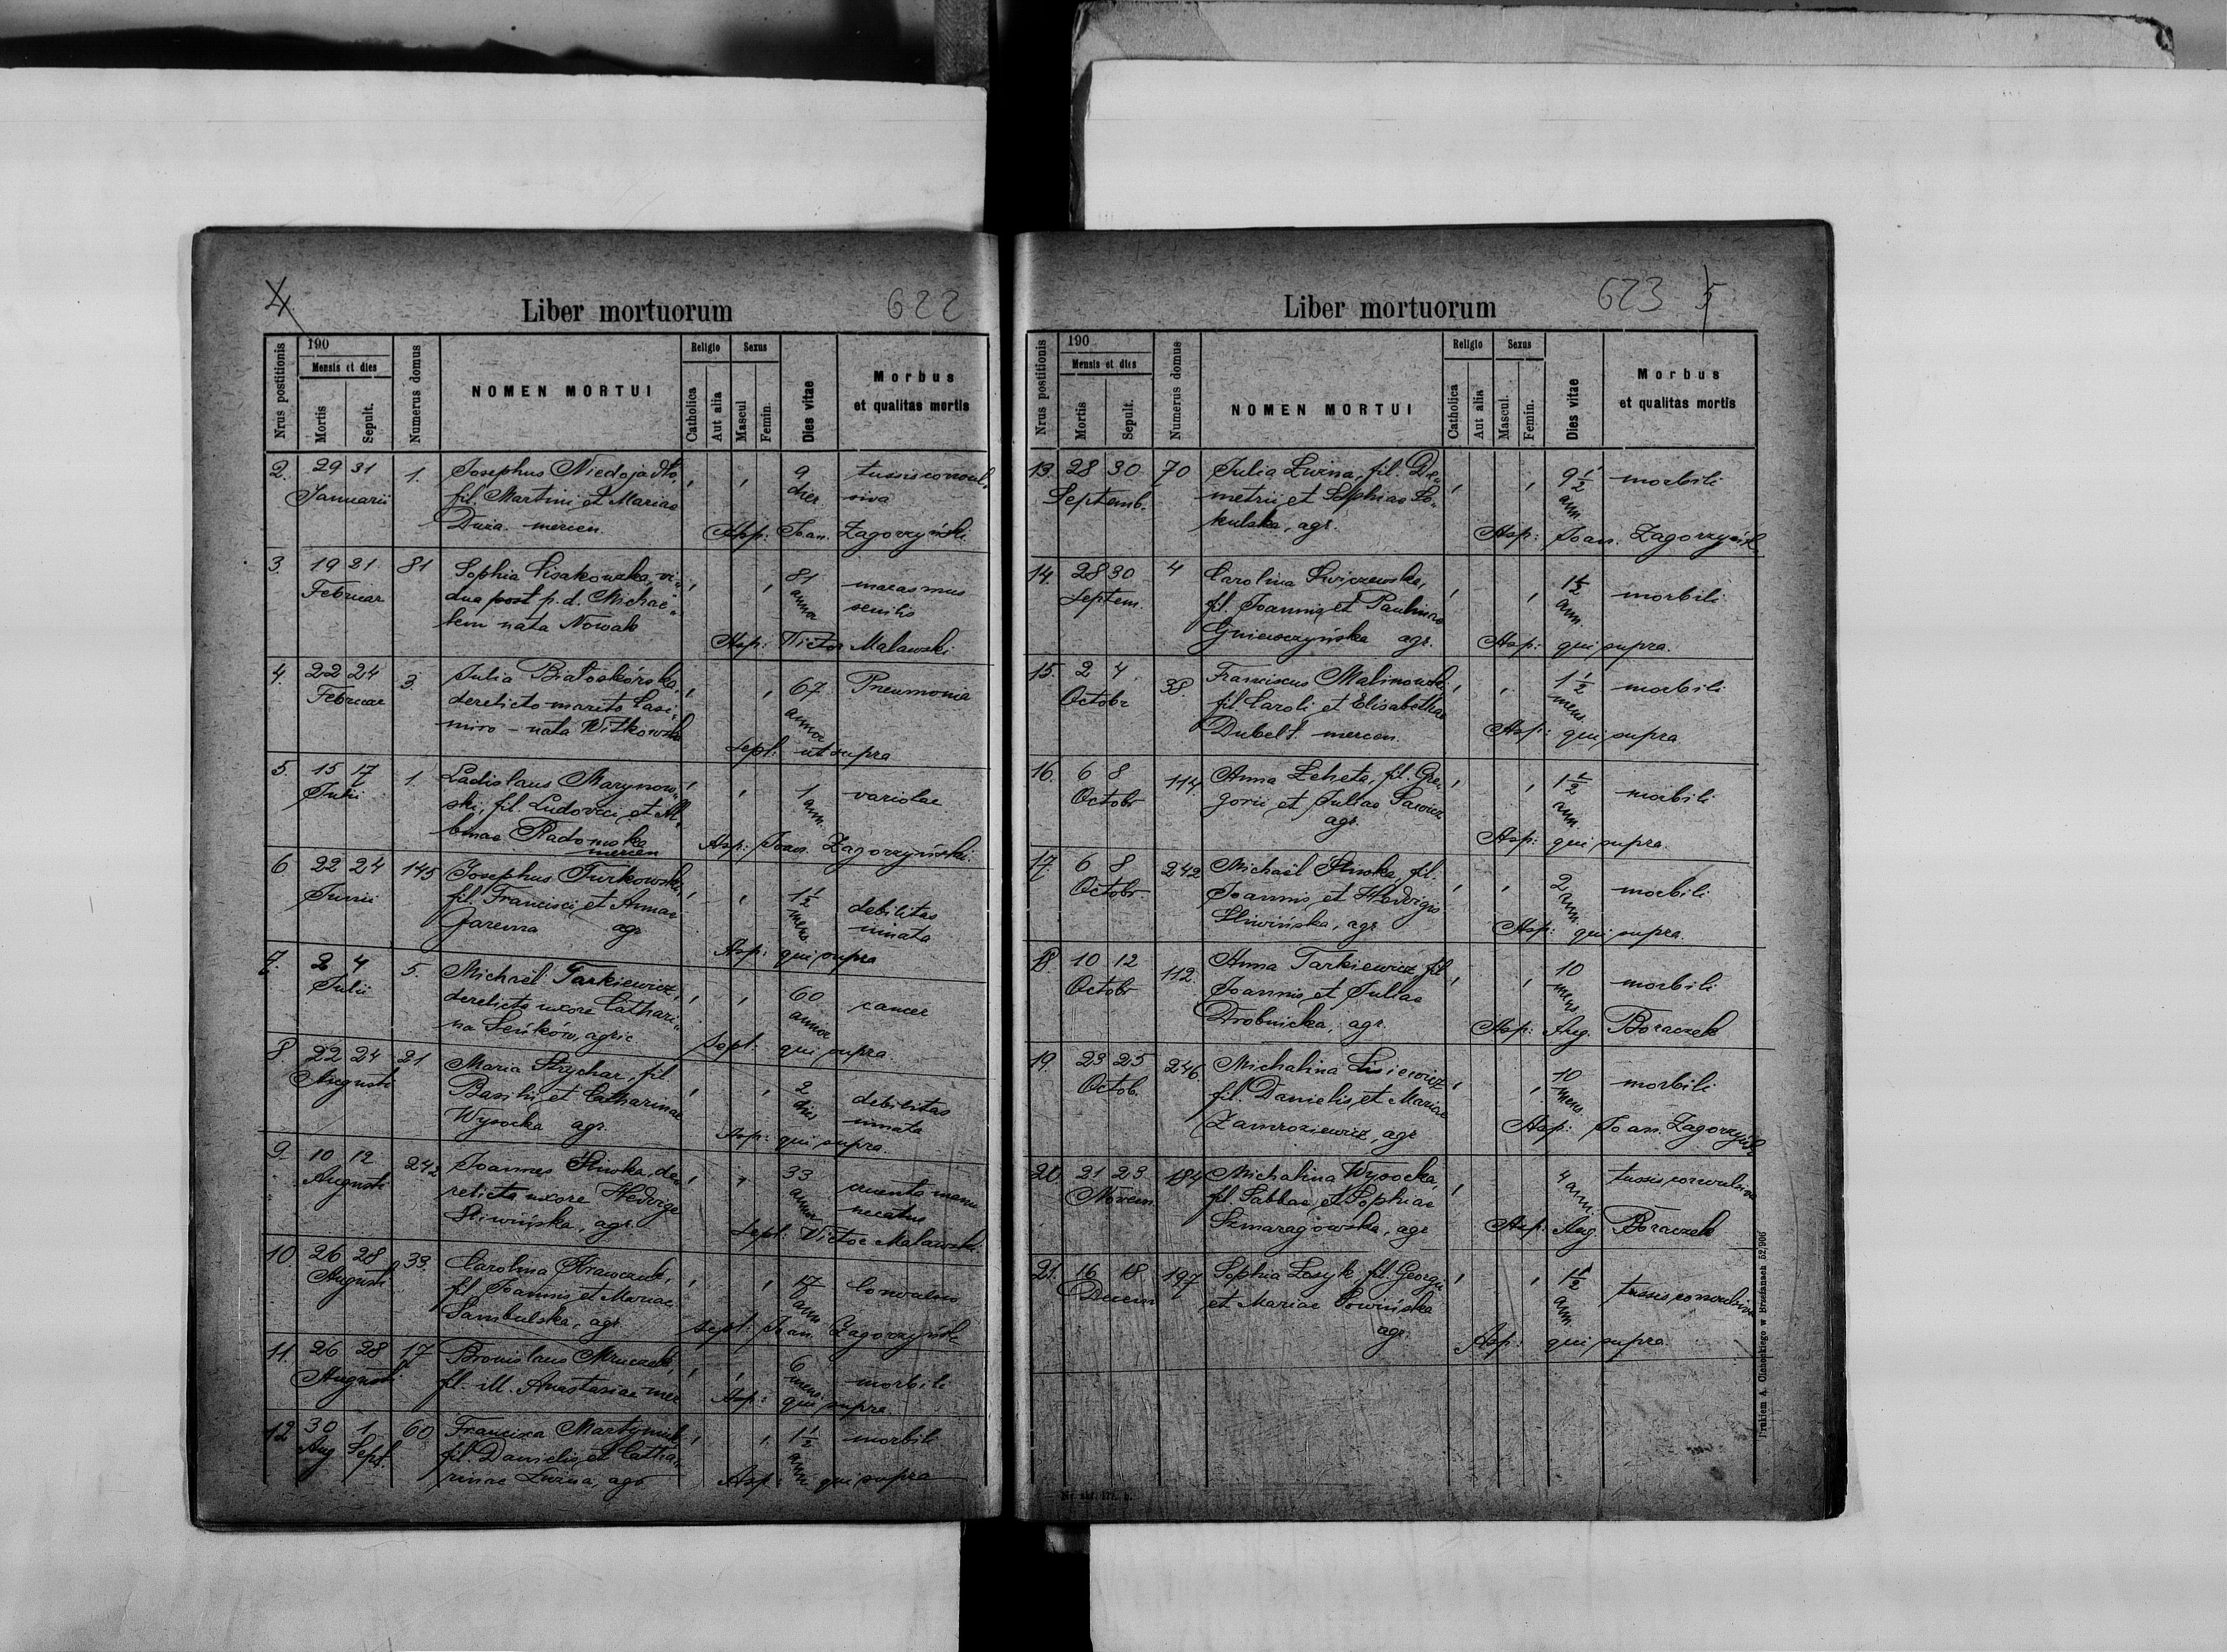 4
Liber mortuorum
622
Nrus postitionis
190
Mensis et dies
Mortis
Sepult.
Numerus domus
NOMEN MORTUI
Religio
Catholica
Aut alia
Sexus
Mascul
Femin.
Dies vitae
Morbus
et qualitas mortis
2. 29 31 1. Josephus Niedojadło, 9 tussis convul-
Januarii fil. Martini et Mariae dier. siva
Duża mercen. Asp: Joan. Zagorzyński
3. 19 21 81 Sophia Lisakowska, vi- 81 marasmus
Februar dua post p. d. Michae- annor senilis
lem nata Nowak Asp: Victor Malawski
4. 22 24 3. Julia Białoskórska, 67 Pneumonia
Februar derelicto marito Casi- annor
miro - nata Witkowska Sepl: ut supra
5. 15 17 1. Ladislaus Marynow- 1 variolae
Julii ski, fil. Ludovici et Al- ann.
binae Radomska
mercen Asp: Joan. Zagorzyński
6 22 24 145 Josephus Turkowski, 1½ debilitas
Junii fil. Francisci et Annae mens. innata
Jarema agr Asp: qui supra
7. 2 4 5. Michaël Tarkiewicz, 60 cancer
Julii derelicta uxore Cathari- annor
na Seńków, agric Sepl: qui supra.
8 22 24 21 Maria Strychar, fil. 2 debilitas
Augusti Basilii et Catharinae dies innata
Wysocka agr. Asp: qui supra.
9. 10 12 242 Joannes Słuoka, de- 33 cruenta manu
Augusti relicta uxore Hedvige annor necatus
Sliwińska, agr. Sepl: Victor Malawski.
10. 26 28 33. Carolina Krawczuk, 17 Convulsio
Augusti fil. Joannis et Mariae ann
Sambulska, agr. Sepl: Joan. Zagorzyński
11. 26 28 17 Bronislaus Mruczek, 6 morbili
Augusti fil. ill. Anastasiae mer mens. Asp: qui supra.
12 30 1. 60 Francisca Martyniuk, 1½ morbili
Aug Sept. fil. Danielis et Catha- ann.
rinae Luzna, agr Asp: qui supra
Liber mortuorum
623 5
Nrus postitionis
190
Mensis et dies
Mortis
Sepult.
Numerus domus
NOMEN MORTUI
Religio
Catholica
Aut alia
Sexus
Mascul.
Femin.
Dies vitae
Morbus
et qualitas mortis
13. 28 30 70 Julia Luzna, fil. De- 9½ morbili
Septemb. metrii et Sophiae So- ann.
kulska, agr. Asp: Joan. Zagorzyński
14. 28 30 4 Carolina Swiczewska, 1½ morbili
Septem. fil. Joannis et Paulinae ann.
Gniewczyńska agr. Asp: qui supra.
15. 2 4. 38. Franciscus Malinowski, 1½ morbili
Octobr fil. Caroli et Elisabethae mens.
Dubelt mercen. Asp: qui supra
16. 6 8 114 Anna Leheta, fil. Gre- 1½ morbili
Octobr gorii et Juliae Sawicz ann.
agr. Asp: qui supra.
17. 6 8 242 Michaël Słuoka, fil. 2 morbili
Octobr Joannis et Hedvigis ann.
Sliwińska, agr Asp: qui supra.
18. 10 12 112. Anna Tarkiewicz, fil 10 morbili
Octobr Joannis et Juliae mens.
Drobnicka, agr. Asp: Aug. Boraczek
19. 23 25 246. Michalina Lisiewicz, 10 morbili
Octob. fil. Danielis et Mariae mens.
Zamroziewicz, agr Asp: Joan. Zagorzyński
20. 21 23 184 Michalina Wysocka, 4 tussis convulsiva
Novem fil. Sabbae et Sophiae ann.
Szmaragowska, agr Asp: Aug. Boraczek
21. 16 18 197 Sophia Lesyk, fil. Georgii 1½ tussis convulsiva
Decem et Mariae Sowińska ann.
agr. Asp: qui supra.
Drukiem A. Cichockiego w Brzeżanach 52/906